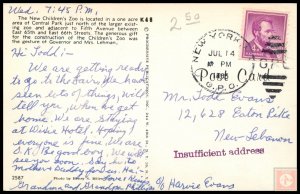 Wed. 7:45 P.M.
The New Children's Zoo is located in a one acre
area of Central Park just north of the larger exist-
ing zoo and adjacent to Fifth Avenue between
East 65th and East 66th Streets. The generous gift
for the construction of the Children's Zoo was
the gesture of Governor and Mrs. Lehman.
K48
2 50
Hi Todd!:-
We are getting ready
to go to the Fair. We have
seen lots of things, will
tell you when we get
home. We are Staying
at Hotel. Hoping
everyone is fine. We are
O.K. Be good boy. We will
see you soon. Say hi to
Mother & Daddy for us.
Grandma and Grandpa
2587
NEW YORK
JUL 14
G.P.O.
Post Card
Mr. Todd Evans
12,628 Eaton Pike
New Lebanon
Insufficient address
c/o Harvie Evans